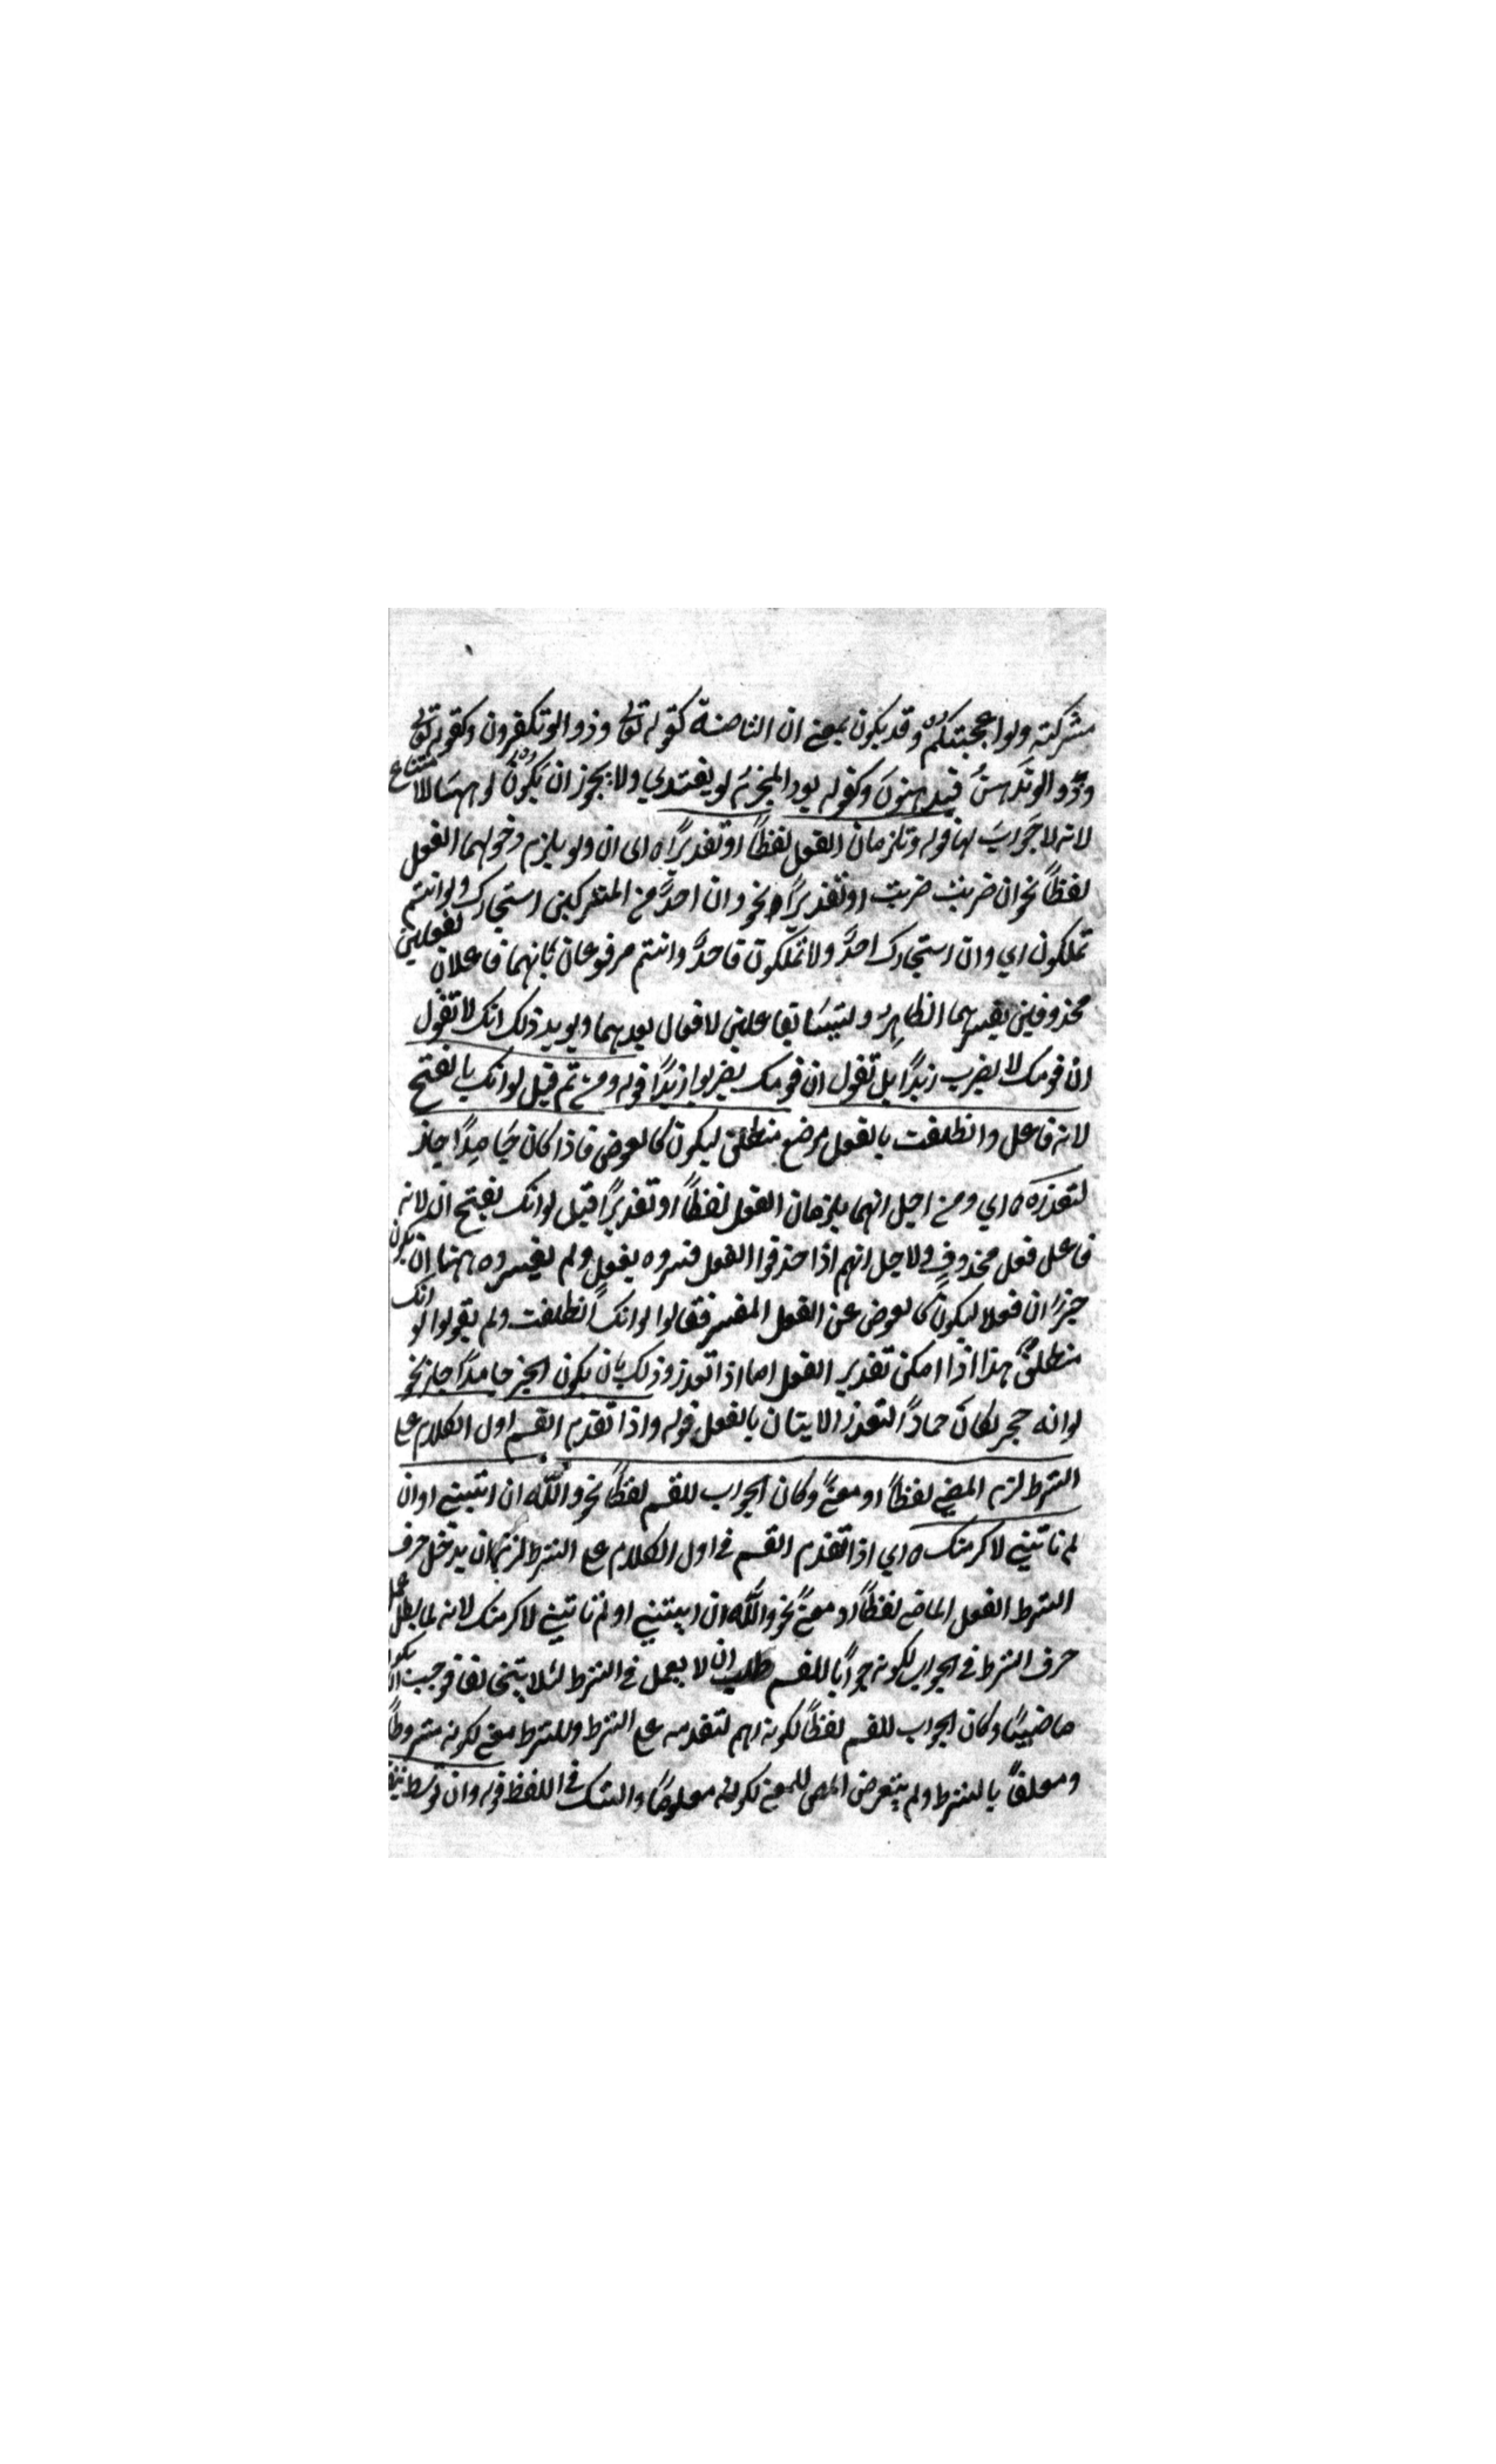 مشركة ولو اعجبتكم وقد يكون بمعنى ان الناصبة كقوله تعالى وذوا لو تكفرون وكقوله تعالى
ودّوا لو تدهن فيدهنون وكقوله يود المجرم لو يفتدي ولا يجوز ان يكون لو ههنا للامتناع
لانه لا جواب لها قوله وتلزمان الفعل لفظاً او تقديراً ه اى ان ولو يلزم دخولهما الفعل
لفظاً نحو ان ضربت ضربت او تقديراً نحو وان احدٌ من المشركين استجارك ولو انتم
تملكون اي وان استجارك احدٌ ولا تملكون فاحدٌ وانتم مرفوعان بانهما فاعلان لفعلين
محذوفين يفسرهما الظاهر وليسا بفاعلين لافعال بعدهما ويويد ذلك انك لا تقول
ان قومك لا يضرب زيداً بل تقول ان قومك يضربوا زيداً قوله ومن ثم قيل لو انك بالفتح
لانه فاعل وانطلقت بالفعل موضع منطلق ليكون كالعوض فاذا كان جامداً جاز
لتعذره ه اي ومن اجل انهما يلزمان الفعل لفظاً او تقديراً قيل لو انك بفتح ان لانه
فاعل فعل محذوف ولاجل انهم اذا حذفوا الفعل فسروه بفعل ولم يفسروه ههنا ان يكون
خبر ان فعلا ليكون كالعوض عن الفعل المفسر فقالوا لو انك انطلقت ولم يقولوا لو انك
منطلقٌ هذا اذا امكن تقدير الفعل اما اذا تعذر وذلك بان يكون الخبر جامداً جاز نحو
لو انه حجر لكان جماداً لتعذر الاتيان بالفعل قوله واذا تقدم القسم اول الكلام على
الشرط لزم المضي لفظاً او معنىً وكان الجواب للقسم لفظاً نحو والله ان اتيتني او ان
لم تاتيني لاكرمتك ه اي اذا تقدم القسم في اول الكلام على الشرط لزم ان يدخل حرف
الشرط الفعل الماضي لفظاً او معنىً نحو والله ان اتيتني او لم تاتيني لاكرمتك لانه لما بطل عمل
حرف الشرط في الجواب لكونه جواباً للقسم طلب ان لا يعمل في الشرط لئلا يتخالفا فوجب ان يكون
ماضيا وكان الجواب للقسم لفظاً لكونه اهم لتقدمه على الشرط وللشرط معنى لكونه مشروطاً
ومعلقاً بالشرط ولم يتعرض المص للمعنى لكونه معلوماً والشك في اللفظ قوله وان توسط